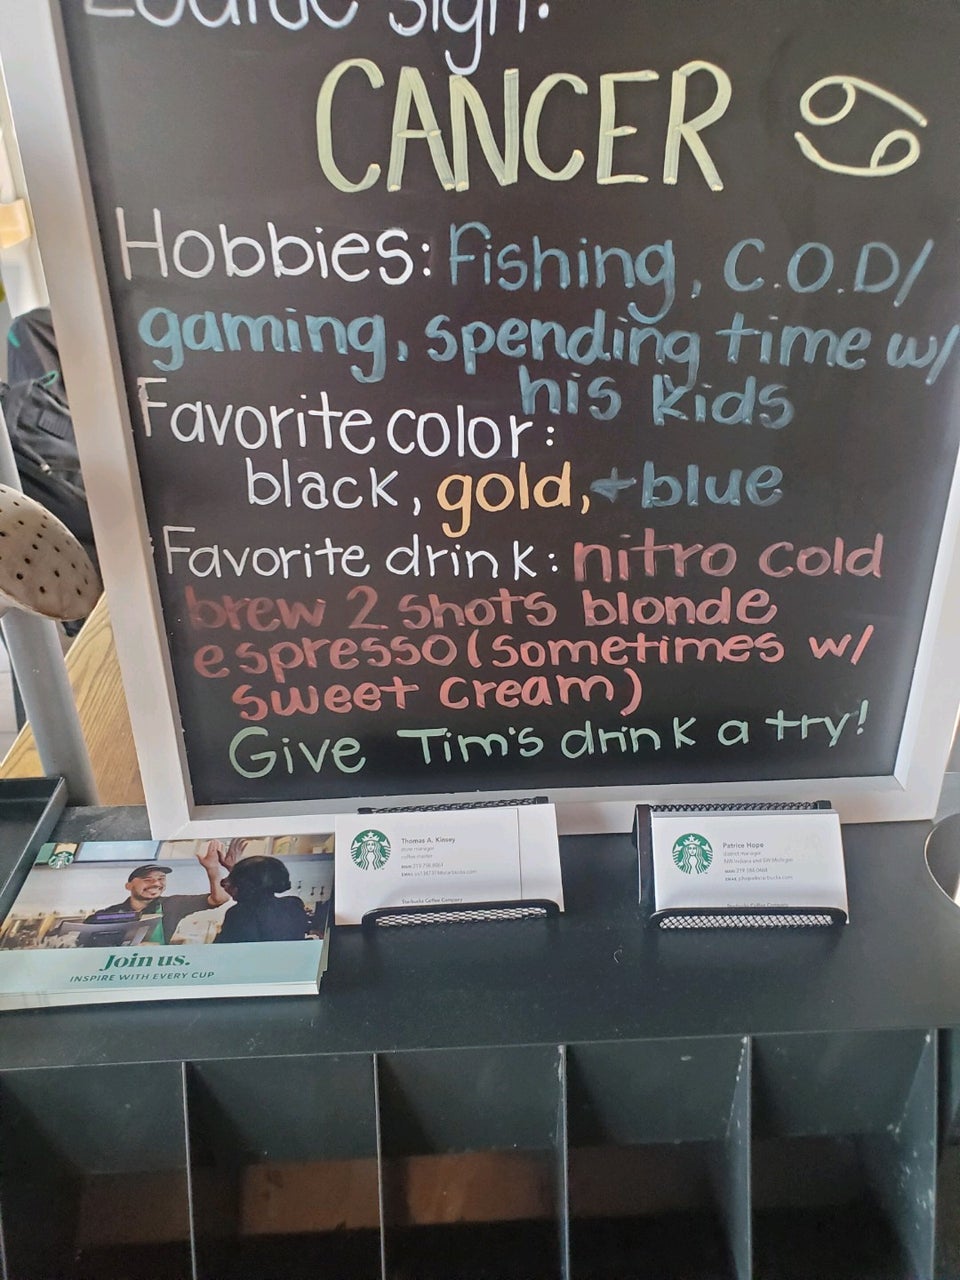 Zodiac sign:
CANCER
Hobbies: fishing, C.O.D/
gaming, spending time w/
his kids
Favorite color:
black, gold, + blue
Favorite drink: nitro cold
brew 2 shots blonde
espresso (sometimes w/
sweet cream)
Give Tim's drink a try!
Join us.
INSPIRE WITH EVERY CUP
Thomas A. Kinsey
store manager
coffee master
Starbucks Coffee Company
Patrice Hope
district manager
NW Indiana and SW Michigan
Starbucks Coffee Company